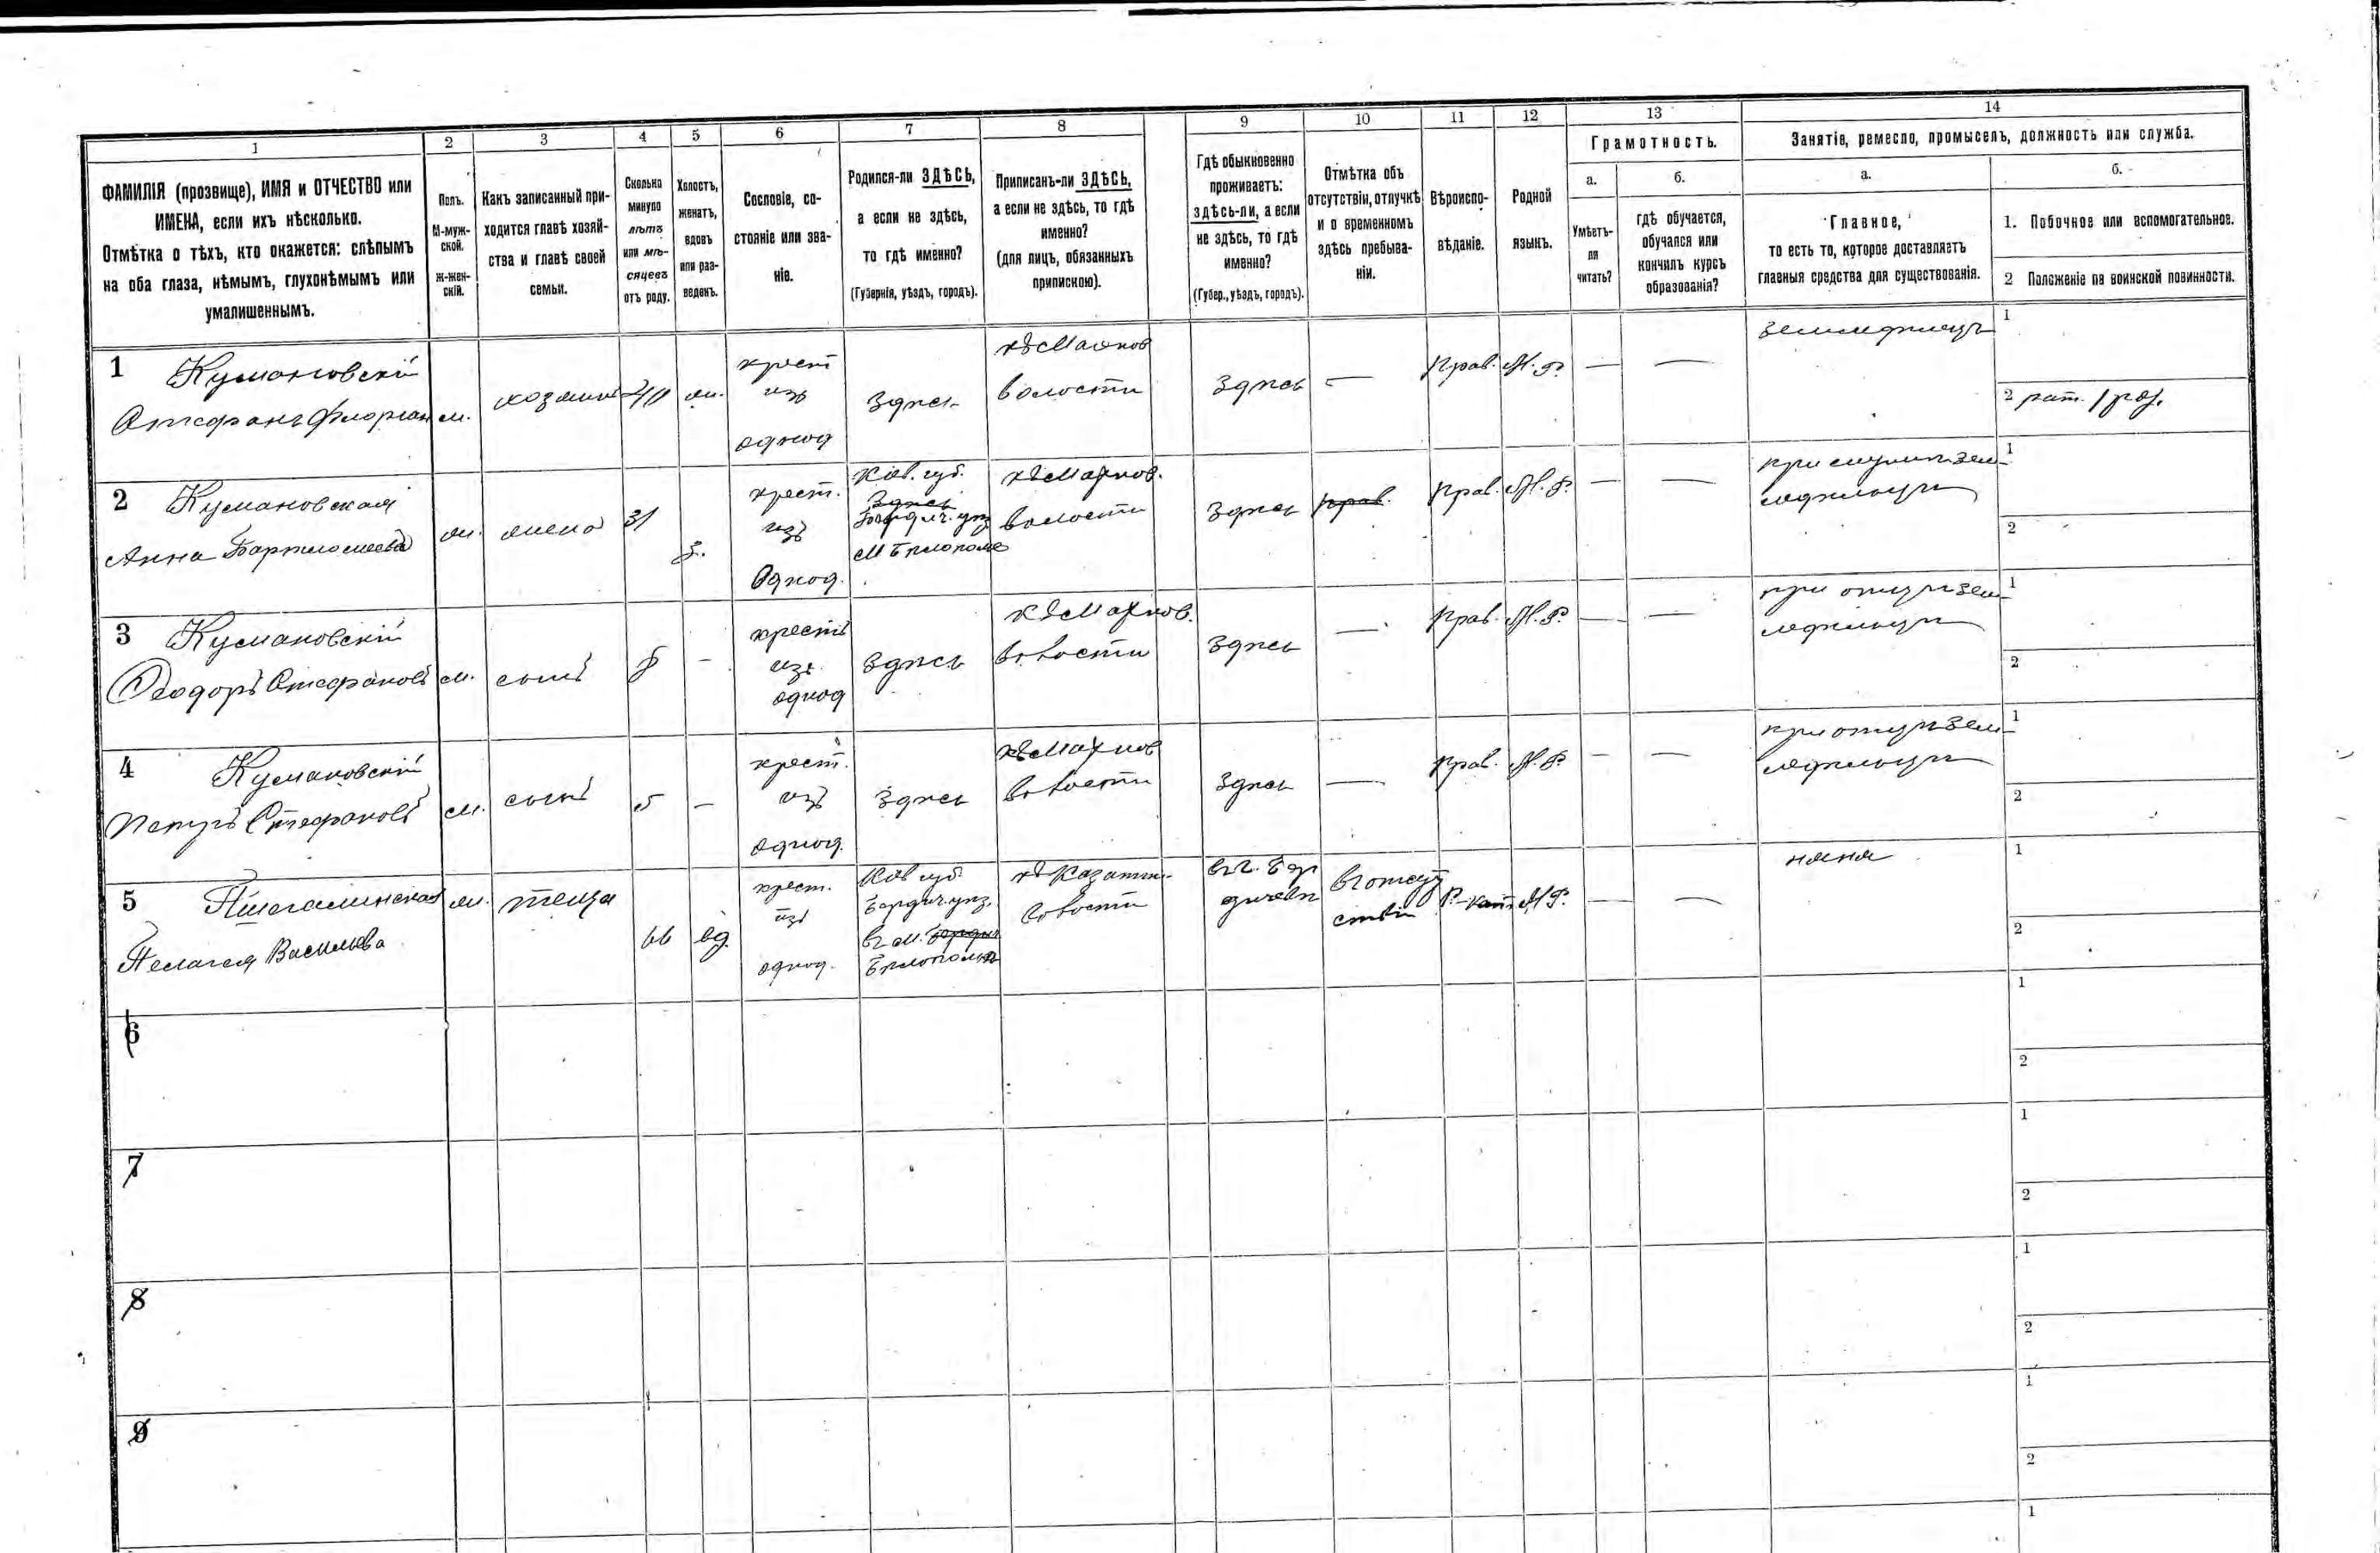 1 2 3 4 5 6 7 8 9 10 11 12 13 14
ФАМИЛІЯ (прозвище), ИМЯ и ОТЧЕСТВО или
ИМЕНА, если ихъ нѣсколько.
Отмѣтка о тѣхъ, кто окажется: слѣпымъ
на оба глаза, нѣмымъ, глухонѣмымъ или
умалишеннымъ.
Полъ.
М-муж-
ской.
Ж-жен-
скій.
Какъ записанный при-
ходится главѣ хозяй-
ства и главѣ своей
семьи.
Сколько
минуло
лѣтъ
или мѣ-
сяцевъ
отъ роду.
Холостъ,
женатъ,
вдовъ
или раз-
веденъ.
Сословіе, со-
стояніе или зва-
ніе.
Родился-ли ЗДѢСЬ,
а если не здѣсь,
то гдѣ именно?
(Губернія, уѣздъ, городъ).
Приписанъ-ли ЗДѢСЬ,
а если не здѣсь, то гдѣ
именно?
(для лицъ, обязанныхъ
припискою).
Гдѣ обыкновенно
проживаетъ:
здѣсь-ли, а если
не здѣсь, то гдѣ
именно?
(Губер., уѣздъ, городъ).
Отмѣтка объ
отсутствіи, отлучкѣ
и о временномъ
здѣсь пребыва-
ніи.
Вѣроиспо-
вѣданіе.
Родной
языкъ.
Грамотность.
а.
Умѣетъ-
ли
читать?
б.
гдѣ обучается,
обучался или
кончилъ курсъ
образованія?
Занятіе, ремесло, промыселъ, должность или служба.
а.
Главное,
то есть то, которое доставляетъ
главныя средства для существованія.
б.
1. Побочное или вспомогательное.
2 Положеніе по воинской повинности.
1 Кумановскій
Стефанъ Флоріан
м.
хозяинъ
40
ж.
крест
изъ
однод
Здѣсь
волости
Здѣсь
—
Прав.
М. Р.
—
—
земледѣлецъ
1
2 рат. 1 раз.
2 Кумановская
Анна Бартломеева
ж.
жена
31
з.
крест.
изъ
Однод.
Кіев. губ.
Здѣсь
Бердич. уѣз
м Бѣлополье
къ Махнов.
волости
Здѣсь
прав.
Прав.
М. Р.
—
—
1
2
3 Кумановскій
Ѳеодоръ Стефановъ
м.
сынъ
8
—
крестъ
изъ
однод
Здѣсь
къ Махнов.
волости
Здѣсь
—
Прав.
М. Р.
—
—
при отцѣ зем-
ледѣльцѣ
1
2
4 Кумановскій
Петръ Стефановъ
м.
сынъ
5
—
крест.
изъ
однод.
Здѣсь
къ Махнов
волости
Здѣсь
—
Прав.
М. Р.
—
—
при отцѣ зем-
ледѣльцѣ
1
2
5
Пелагея Васильева
ж.
теща
66
вд.
крест.
изъ
однод.
Кіев губ
Бердич. уѣз.
въ м. Бердич
Бѣлопольѣ
къ Казатин-
волости
въ г. Бер
дичевѣ
въ отсут
ствіи
Р.-кат
М Р.
—
—
няня
1
2
6
1
2
7
1
2
8
1
2
9
1
2
1